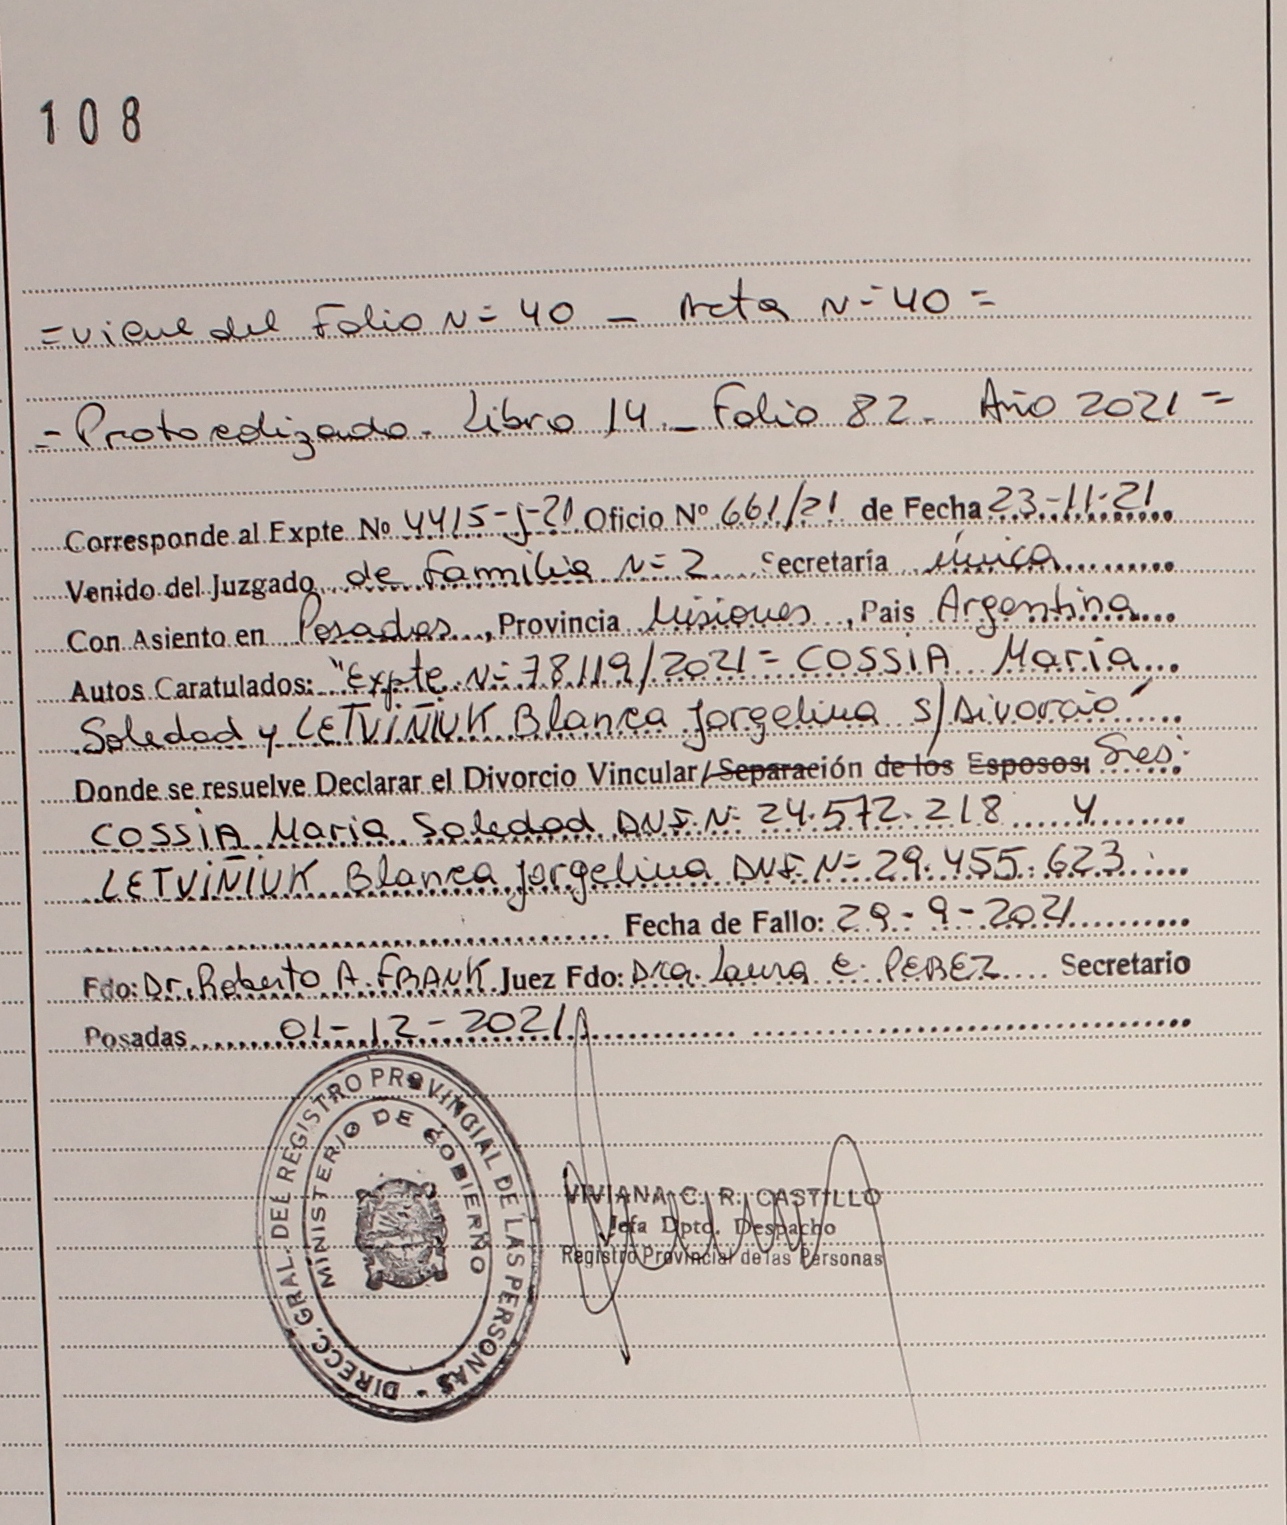 108
= Viene del Folio N= 40 _ Acta N= 40 =
= Protocolizado - Libro 14 _ Folio 82 - Año 2021 =
Corresponde al Expte Nº 4415-J-21 Oficio Nº 661/21 de Fecha 23-11-21
Venido del Juzgado de Familia N= 2 Secretaría única
Con Asiento en Posadas, Provincia Misiones, Pais Argentina
Autos Caratulados: "Expte N= 78119/2021 = COSSIA Maria
Soledad y LETVIÑIUK Blanca Jorgelina s/Divorcio"
Donde se resuelve Declarar el Divorcio Vincular/Separación de los Esposos: Sres:
COSSIA Maria Soledad DNI. N= 24.572.218 y
LETVIÑIUK Blanca Jorgelina DNI. N= 29.455.623
Fecha de Fallo: 29-9-2021
Fdo: Dr. Roberto A. FRANK Juez Fdo: Dra. Laura E. PEREZ Secretario
Posadas 01-12-2021
DIRECC. GRAL. DEL REGISTRO PROVINCIAL DE LAS PERSONAS -
MINISTERIO DE GOBIERNO
VIVIANA C. R. CASTILLO
Jefa Dptd. Despacho
Registro Provincial de las Personas